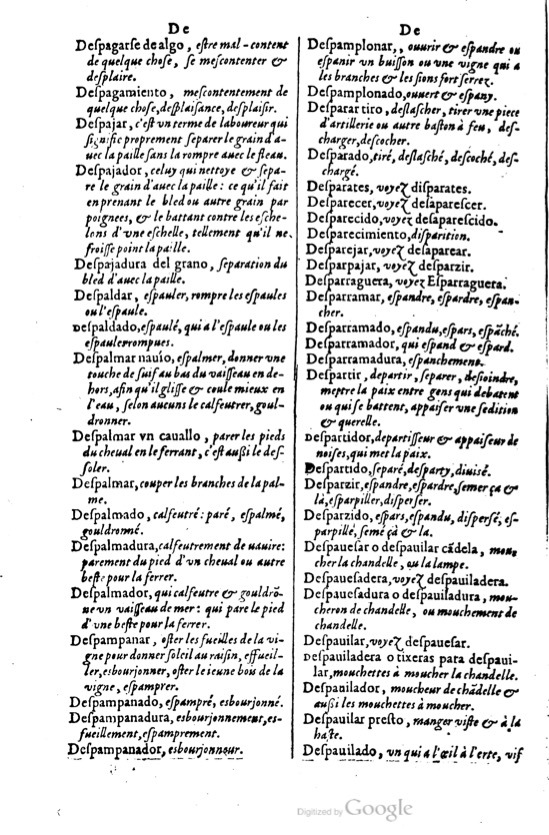 De
Deſpagarſe de algo, eſtre mal-content
de quelque choſe, ſe meſcontenter &
deſplaire.
Deſpagamiento, meſcontentement de
quelque choſe, deſplaiſance, deſplaiſir.
Deſpajar, c'eſt vn terme de laboureur qui
ſignific proprement ſeparer le grain d'a-
uec la paille ſans la rompre auec le fleau.
Deſpajador, celuy qui nettoye & ſepa-
re le grain d'auec la paille : ce qu'il fait
en prenant le bled ou autre grain par
poignees, & le battant contre les eſche-
lons d'vne eſchelle, tellement qu'il ne
froiſſe point la paille.
Deſpajadura del grano, ſeparation du
bled d'auec la paille.
Deſpaldar, eſpauler, rompre les eſpaules
ou l'eſpaule.
Deſpaldado, eſpaulé, qui a l'eſpaule ou les
eſpaules rompues.
Deſpalmar nauio, eſpalmer, donner vne
touche de ſuif au bas du vaiſſeau en de-
hors, afin qu'il gliſſe & coule mieux en
l'eau, ſelon aucuns le calfeutrer, goul-
dronner.
Deſpalmar vn cauallo, parer les pieds
du cheual en le ferrant, c'eſt auſſi le deſ-
ſoler.
Deſpalmar, couper les branches de la pal-
me.
Deſpalmado, calfeutré : paré, eſpalmé,
gouldronné.
Deſpalmadura, calfeutrement de nauire:
parement du pied d'vn cheual ou autre
beſte pour la ferrer.
Deſpalmador, qui calfeutre & gouldrō-
ne vn vaiſſeau de mer : qui pare le pied
d'vne beſte pour la ferrer.
Deſpampanar, oſter les fueilles de la vi-
gne pour donner ſoleil au raiſin, effueil-
ler, esbourjonner, oſter le ieune bois de la
vigne, eſpamprer.
Deſpampanado, eſpampré, esbourjonné.
Deſpampanadura, esbourjonnement, eſ-
fueillement, eſpamprement.
Deſpampanador, esbourjonneur.
De
Deſpamplonar,, ouurir & eſpandre ou
eſpanir vn buiſſon ou vne vigne qui a
les branches & les ſions fort ſerrez.
Deſpamplonado, ouuert & eſpany.
Deſparar tiro, deſlaſcher, tirer vne piece
d'artillerie ou autre baſton à feu, deſ-
charger, deſcocher.
Deſparado, tiré, deſlaſché, deſcoché, deſ-
chargé.
Deſparates, voyeȥ diſparates.
Deſparecer, voyeȥ deſapareſcer.
Deſparecido, voyeȥ deſapareſcido.
Deſparecimiento, diſparition.
Deſparejar, voyeȥ deſaparear.
Deſparpajar, voyeȥ deſparzir.
Deſparraguera, voyeȥ Eſparraguera.
Deſparramar, eſpandre, eſpardre, eſpan-
cher.
Deſparramado, eſpandu, eſpars, eſpāché.
Deſparramador, qui eſpand & eſpard.
Deſparramadura, eſpanchement.
Deſpartir, departir, ſeparer, deſioindre,
mettre la paix entre gens qui debatent
ou qui ſe battent, appaiſer vne ſedition
& querelle.
Deſpartidor, departiſſeur & appaiſeur de
noiſes, qui met la paix.
Deſpartido, ſeparé, deſparty, diuisé.
Deſparzir, eſpandre, eſpardre, ſemer ça &
là, eſparpiller, diſperſer.
Deſparzido, eſpars, eſpandu, diſperſé, eſ-
parpillé, ſemé çà & la.
Deſpaueſar o deſpauilar cādela, mou-
cher la chandelle, ou la lampe.
Deſpaueſadera, voyeȥ deſpauiladera.
Deſpaueſadura o deſpauiladura, mou-
cheron de chandelle, ou mouchement de
chandelle.
Deſpauilar, voyeȥ deſpaueſar.
Deſpauiladera o tixeras para deſpaui-
lar, mouchettes à moucher la chandelle.
Deſpanilador, moucheur de chādelle &
auſſi les mouchettes à moucher.
Deſpauilar preſto, manger viſte & à la
haſte.
Deſpauilado, vn qui a l'œil à l'erte, vif
Digitized by Google